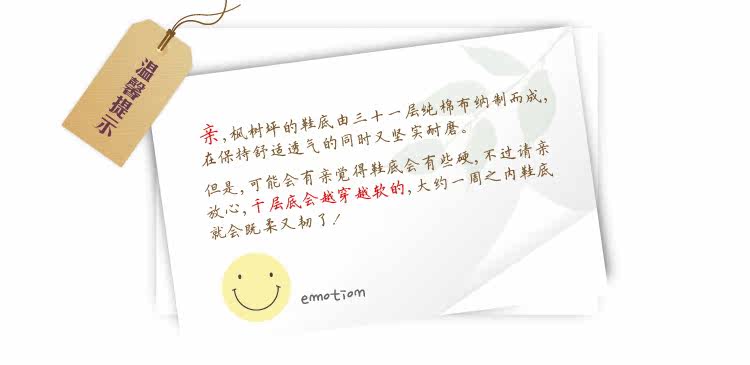 温馨提示
亲,枫树坪的鞋底由三十一层纯棉布纳制而成,
在保持舒适透气的同时又坚实耐磨。
但是,可能会有亲觉得鞋底会有些硬,不过请亲
放心,千层底会越穿越软的,大约一周之内鞋底
就会既柔又韧了!
emotion